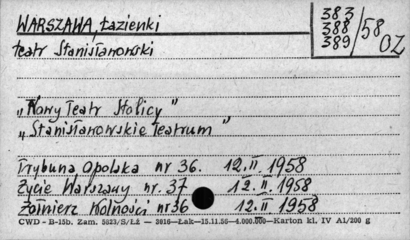 WARSZAWA, Łazienki
383
388
389
/58
OZ
Teatr Stanisławowski
„Nowy Teatr Stolicy”
„Stanisławowskie Teatrum”
Trybuna Opolska nr 36. 12.II.1958
Życie Warszawy nr. 37 12.II.1958
Żołnierz Wolności nr 36 12.II.1958
CWD - B-15b. Zam. 5023/S/Łż — 3816—Łak—15.11.56—4.000.000—Karton kl. IV A1/200 g